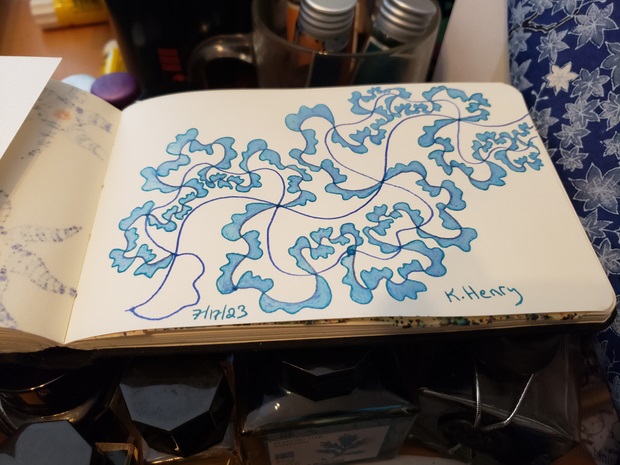 7/17/23
K.Henry